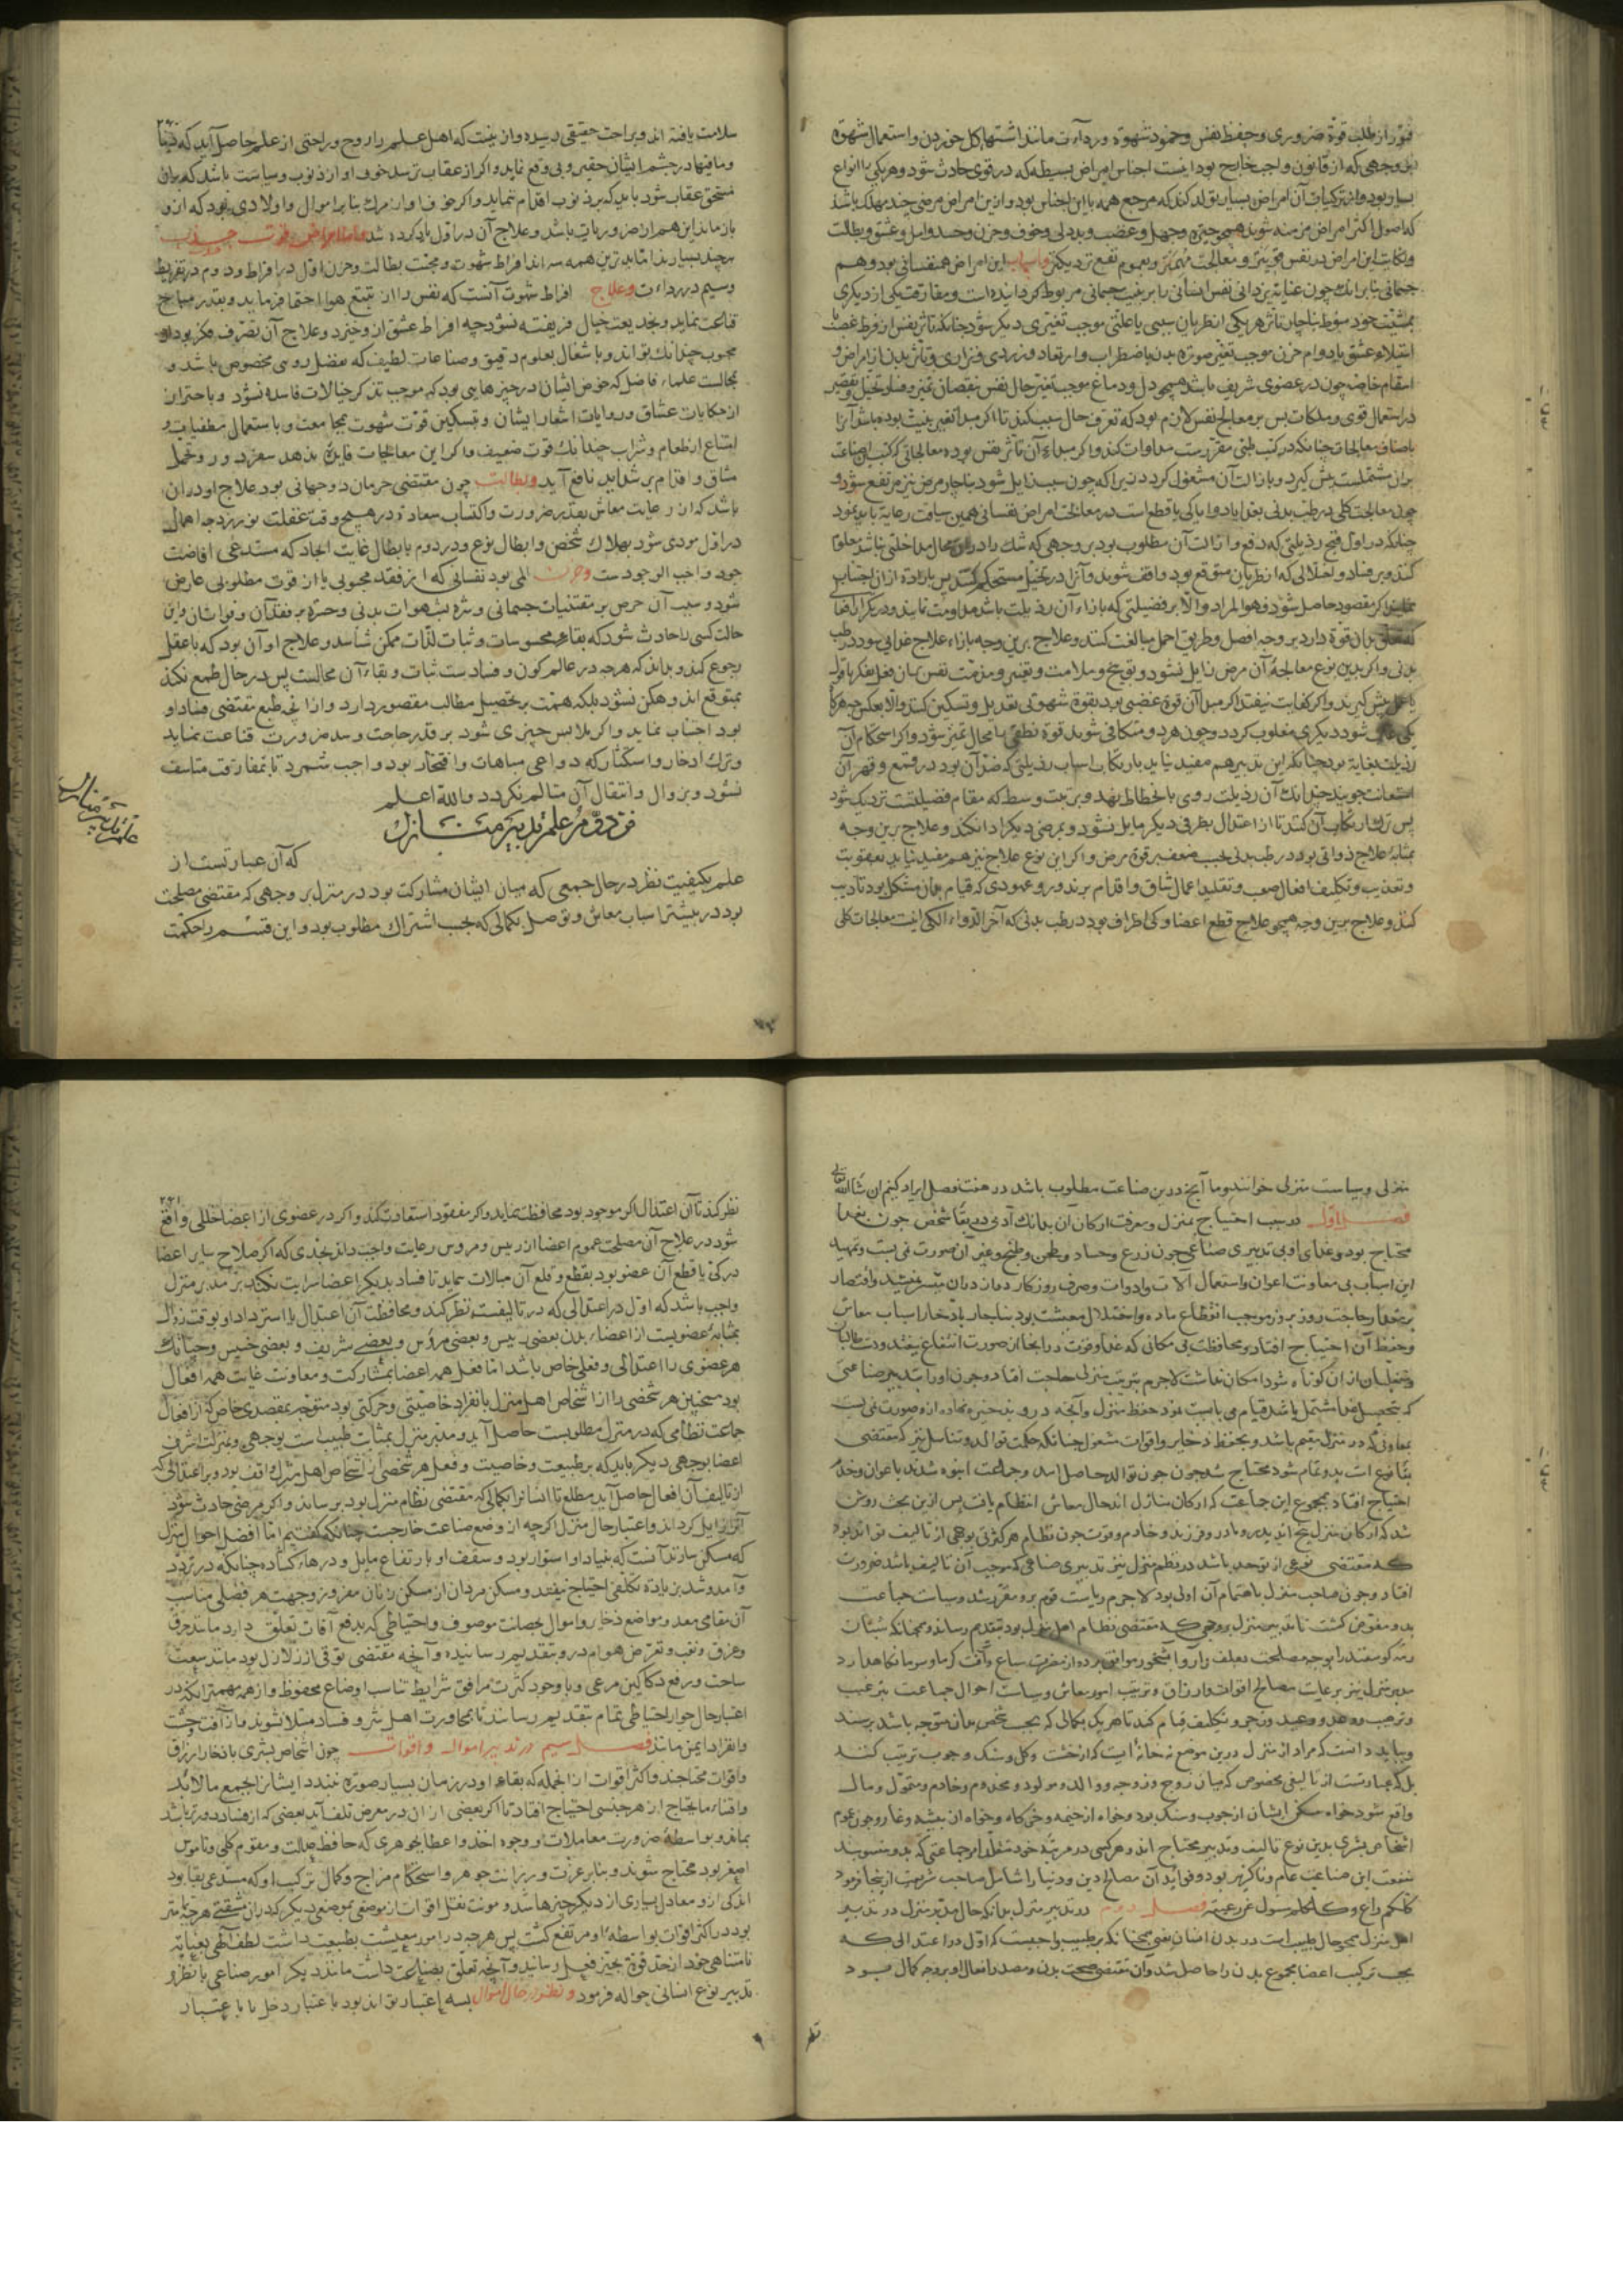 قوّة از طلب قوّة ضروری و حفظ نفس و خمود شهوة و رداءت مانند اشتهای کل خوردن و استعمال شهوة
بر وجهی که از قانون واجب خارج بود اینست اجناس امراض بسیطه که در قوی حادث شود و هر یکی را انواع
بسیار بود و از ترکیبات آن امراض بسیار تولد کند که مرجع همه با این اجناس بود و ازین امراض مرضی چند مهلک باشد
که اصول اکثر امراض مزمنه شوند همچو حیرة و جهل و غضب و بددلی و خوف و حزن و حسد و امل و عشق و بطالت
و نکایت این امراض در نفس قوی‌تر و معالجت مهم‌تر و بعموم نفع نزدیکتر و اسباب این امراض هم نفسانی بود و هم
جسمانی بنا برانک چون عنایة یزدانی نفس انسانی را بر بنیت جسمانی مربوط گردانیده است و مفارقت یکی از دیگری
بمشیّت خود منوط بناچار تاثر هر یکی از نظریان سببی یا علتی موجب تغیّری دیگر شود چنانکه تاثر نفس از فرط غضب یا
استیلاء عشق یا دوام حزن موجب تغیّر صورة بدن باضطراب و ارتعاد و زردی و نزاری و تاثر بدن از امراض و
اسقام خاصّه چون در عضوی شریف باشد همچو دل و دماغ موجب تغیّر حال نفس بنقصان تمیز و فساد تخیل و تقصیر
در استعمال قوی و ملکات پس بر معالج نفس لازم بود که تعرف حال سبب کند تا اگر مبدأ تغیر بنیت بوده باشد آنرا
باصناف معالجات چنانکه در کتب طبی مقررست مداوات کند و اگر مبداء آن تاثر نفس بوده معالجاتی که کتب این صناعت
بران مشتملست پیش گیرد و بازالت آن مشغول گردد زیرا که چون سبب زایل شود ناچار مرض نیز مرتفع شود و
چون معالجت کلی در طب بدنی بغذا یا دوا یا کی یا قطع است در معالجت امراض نفسانی همین سیاقت رعایة باید نمود
چنانکه در اول قبح رذیلتی که دفع و ازالت آن مطلوب بود بر وجهی که شک را دران مجال مداخلتی نباشد معلوم
کند و بر فساد و اختلالی که از نظریان متوقع بود واقف شود و آنرا در تخیل مستحکم کند پس بارادة ازان اجتناب
نماید اگر مقصود حاصل شود فهو المراد و الا بر فضیلتی که بازاء آن رذیلت باشد مداومت نماید و در تکرار افعال
که تعلق بدان قوة دارد بر وجه افضل و طریق اجمل مبالغت کند و علاج برین وجه بازاء علاج غذایی بود در طب
بدنی و اگر بدین نوع معالجة آن مرض زایل نشود و توبیخ و ملامت و تعییر و مذمّت نفس بران فعل بفکر یا قول
یا عمل پیش گیرند و اگر کفایت نیفتد اگر مبدأ آن قوة غضبی بود بقوة شهوتی تعدیل و تسکین کنند والا بعکس چه هرگاه
یکی غالب شود دیگری مغلوب گردد و چون هر دو متکافی شوند قوة نطقی را مجال تمیز شود و اگر استحکام آن
رذیلت بغایة بود چنانکه این تدبیر هم مفید نیاید بارتکاب اسباب رذیلتی که ضد آن بود در قمع و قهر آن
استعانت جویند چندانک آن رذیلت روی بانحطاط نهد و برتبت وسط که مقام فضیلتست نزدیک شود
پس ترک ارتکاب آن کند تا از اعتدال بطرفی دیگر مایل نشود و بمرضی دیگر ادا نکند و علاج برین وجه
بمثابه علاج دوائی بود در طب بدنی بحسب ضعف قوة مرض و اگر این نوع علاج نیز هم مفید نیاید بعقوبت
و تعذیب و تکلیف افعال صعب و تقلید اعمال شاق و اقدام بر نذور و عهودی که قیام بدان مشکل بود تادیب
کند و علاج برین وجه همچو علاج قطع اعضا و کی اطراف بود در طب بدنی که آخر الدواء الکی اینست معالجات کلی
سلامت یافته اند و براحت حقیقی رسیده و ازینست که اهل علم را روح و راحتی از علم حاصل آید که دنیا
و ما فیها در چشم ایشان حقیر و بی وقع نماید و اگر از عقاب ترسد خوف او از ذنوب و سیاست باشد که بدان
مستحق عقاب شود باید که بر ذنوب اقدام ننماید و اگر خوف او از مرگ بنا بر اموال و اولادی بود که ازو
باز ماند این هم از ضروریات باشد و علاج آن در اول یاد کرده شد و اما امراض قوت جذب
هرچند بسیارند اما بدترین همه سه اند افراط شهوت و محبت بطالت و حزن اول در افراط و دوم در تفریط
و سیم در رداءت و علاج افراط شهوت آنست که نفس را از تتبع هوا احتما فرماید و بقدر مباح
قناعت نماید و بخدیعت خیال فریفته نشود چه افراط عشق ازو خیزد و علاج آن بصرف فکر بود از
محبوب چندانک تواند و باشتغال بعلوم دقیق و صناعات لطیف که بفضل رویتی مخصوص باشد و
مجالست علماء فاضل که خوض ایشان در چیزهایی بود که موجب تذکر خیالات فاسده نشود و باحتراز
از حکایات عشاق و روایات اشعار ایشان و تسکین قوّت شهوت بمجامعت و باستعمال مطفیات و
امتناع از طعام و شراب چندانک قوت ضعیف و اگر این معالجات فایده ندهد سفر دور و تحمل
مشاق و اقدام بر شداید نافع آید و بطالت چون مقتضی حرمان دوجهانی بود علاج او دران
باشد که از رعایت معاش بقدر ضرورت و اکتساب سعادة در هیچ وقت غفلت نورزد چه اهمال
در اول مودی شود بهلاک شخص و ابطال نوع و در دوم بابطال غایت ایجاد که مستدعی افاضت
جود واجب الوجودست و حزن المی بود نفسانی که از فقد محبوبی یا از فوت مطلوبی عارض
شود و سبب آن حرص بر مقتضیات جسمانی و شره بشهوات بدنی و حسرة بر فقدان و فوات آن و این
حالت کسی را حادث شود که بقاء محسوسات و ثبات لذّات ممکن شناسد و علاج او آن بود که با عقل
رجوع کند و بداند که هرچه در عالم کون و فسادست ثبات و بقاء آن محالست پس در محال طمع نکند
بمتوقع اندوهگن نشود بلکه همّت بر تحصیل مطالب مقصور دارد و از انچه طبع مقتضی فساد او
بود اجتناب نماید و اگر ملابس چیزی شود بر قدر حاجت و سد ضرورت قناعت نماید
و ترک ادّخار و استکثار که دواعی مباهات و افتخار بود واجب شمرد تا بمفارقت متاسف
نشود و بزوال و انتقال آن متالم نگردد والله اعلم
فن دوّم در علم تدبیر منازل
که آن عبارتست از
علم بکیفیت نظر در حال جمعی که میان ایشان مشارکت بود در منزل بر وجهی که مقتضی مصلحت
بود در تیسّر اسباب معاش و توصل بکمالی که بحسب اشتراک مطلوب بود و این قسم را حکمت
علم تدبیر منازل
منزلی و سیاست منزلی خوانند و ما آنچ درین صناعت مطلوب باشد در هفت فصل ایراد کنیم ان شاالله تعالی
فصل اول در سبب احتیاج بمنزل و معرفت ارکان آن بدانک آدمی در بقاء شخص چون بغذا
محتاج بود و غذای او بی تدبیری صناعی چون زرع و حصاد و طحن و طبخ و غیر آن صورت نمی بست و تمهید
این اسباب بی معاونت اعوان و استعمال آلات و ادوات و صرف روزگار دراز دران متیسر نمیشد و اقتصار
بر مقدار حاجت روز بروز موجب انقطاع ماده و اختلال معیشت بود بناچار بادخار اسباب معاش
و حفظ آن احتیاج افتاد و محافظت بی مکانی که غذا و قوت در انجا از صورت انتفاع نیفتد و دست طالبان
و متغلبان از ان کوتاه شود امکان نداشت لاجرم بترتیب منزلی حاجت افتاد و چون او را بتدبیر صناعتی
که بتحصیل غذا مشتمل باشد قیام می بایست نمود حفظ منزل و آنچه درو بذخیره نهاده ازو صورت نمی بست
بمعاونی که در منزل مقیم باشد و بحفظ ذخایر و اقوات مشغول چنانکه حکمت توالد و تناسل نیز که مقتضی
بقا نوع است بدو تمام شود محتاج شد چون توالد حاصل آمد و جماعت انبوه شدند باعوان و خدم
احتیاج افتاد بمجموع این جماعت که ارکان منازل اند حال معاش انتظام یافت پس ازین بحث روشن
شد که ارکان منزل پنج اند پدر و مادر و فرزند و خادم و قوت چون نظام هر کثرتی بوجهی از تالیف تواند بود
که مقتضی نوعی از توحد باشد در نظم منزل نیز تدبیری صناعی که موجب آن تالیف باشد ضرورت
افتاد و چون صاحب منزل باهتمام آن اولی بود لاجرم ریاست قوم برو مقرر شد و سیاست جماعت
بدو مفوّض گشت تا تدبیر منزل بر وجهی که مقتضی نظام اهل منزل بود بتقدیم رساند و همچنانکه شبان
رمه گوسفند را بوجه مصلحت بعلف زار و آبشخور موافق برد و از مضرت سباع و آفت گرما و سرما نگاهدارد
مدبر منزل نیز برعایت مصالح اقوات و ارزاق و ترتیب امور معاش و سیاست احوال جماعت بترغیب
و ترهیب و وعد و وعید و زجر و تکلیف قیام کند تا هر یک بکمالی که بحسب شخص بدان متوجه باشد برسند
و بباید دانست که مراد از منزل درین موضع نه خانه ایست که از خشت و گل و سنگ و چوب ترتیب کنند
بل که عبارتست از تالیفی مخصوص که میان زوج و زوجه و والد و مولود و مخدوم و خادم و متموّل و مال
واقع شود خواه مسکن ایشان از چوب و سنگ بود و خواه از خیمه و خرگاه و خواه از بیشه و غار و چون عموم
اشخاص بشری بدین نوع تالیف و تدبیر محتاج اند و هر کسی در مرتبه خود متقلد امر جماعتی که بدو منسوبند
منفعت این صناعت عام و ناگزیر بود و فواید آن مصالح دین و دنیا را شامل صاحب شریعت ازینجا فرمود
کلکم راع و کلکم مسئول عن رعیته فصل دوم در تدبیر منزل بدانکه حال مدبر منزل در تدبیر
اهل منزل همچو حال طبیب است در بدن انسان یعنی همچنانکه بر طبیب واجبست که اول در اعتدالی که
بحسب ترکیب اعضا مجموع بدن را حاصل شد و آن مقتضی صحت بدن و مصدر افعال او بر وجه کمال بود
نظر کند تا آن اعتدال اگر موجود بود محافظت نماید و اگر مفقود استعادت کند و اگر در عضوی از اعضا خللی واقع
شود در علاج آن مصلحت عموم اعضا از رییس و مروس رعایت واجب داند بحدی که اگر صلاح سایر اعضا
در کی یا قطع آن عضو بود بقطع و قلع آن مبالات ننماید تا فساد بدیگر اعضا سرایت نکند بر مدبر منزل
واجب باشد که اول در اعتدالی که در تالیفست نظر کند و محافظت آن اعتدال یا استرداد او بوقت زوال
بمثابه عضویست از اعضاء بدن بعضی رییس و بعضی مروس و بعضی شریف و بعضی خسیس و چنانک
هر عضوی را اعتدالی و فعلی خاص باشد اما فعل همه اعضا بمشارکت و معاونت غایت همه افعال
بود همچنین هر شخصی را از اشخاص اهل منزل بانفراد خاصیتی و حرکتی بود متوجه بمقصدی خاص که از افعال
جماعت نظامی که در منزل مطلوبست حاصل آید و مدبر منزل بمثابت طبیب است بوجهی و بمنزلت اشرف
اعضا بوجهی دیگر باید که بر طبیعت و خاصیت و فعل هر شخصی از اشخاص اهل منزل واقف بود و بر اعتدالی که
از تالیف آن افعال حاصل آید مطلع تا ایشانرا بکمالی که مقتضی نظام منزل بود برساند و اگر مرضی حادث شود
آنرا زایل گرداند و اعتبار حال منزل اگرچه از وضع صناعت خارجست چنانکه گفتیم اما افضل احوال منزل
که مسکن سازند آنست که بنیاد او استوار بود و سقف او بارتفاع مایل و درها گشاده چنانکه در تردّد
و آمد و شد بزیادة تکلفی احتیاج نیفتد و مسکن مردان از مسکن زنان مفروز و جهت هر فصلی مناسب
آن مقامی معد و مواضع ذخایر و اموال بحصانت موصوف و احتیاطی که بدفع آفات تعلّق دارد مانند حرق
و غرق و نقب و تعرّض هوام درو بتقدیم رسانیده و آنچه مقتضی توقی از زلازل بود مانند سعت
ساحت و رفع دکاکین مرعی و با وجود کثرت مرافق شرایط تناسب اوضاع محفوظ و از همه مهمتر آنکه در
اعتبار حال جوار احتیاطی تمام بتقدیم رسانند تا بمجاورت اهل شر و فساد مبتلا نشوند و از آفت وحشت
و انفراد ایمن ماند فصل سیم در تدبیر اموال و اقوات چون اشخاص بشری بادّخار ارزاق
و اقوات محتاجند و اکثر اقوات از انجمله که بقاء او در زمان بسیار صورة نبندد ایشان را بجمع مالابد
و اقتناء مایحتاج از هر جنسی احتیاج افتاد تا اگر بعضی از ان در معرض تلف آید بعضی که از فساد دورتر باشد
بماند و بواسطه ضرورت معاملات و وجوه اخذ و اعطا بجوهری که حافظ عدالت و مقوم کلی و ناموس
اصغر بود محتاج شوند و بنا بر عزّت و رزانت جوهر و استحکام مزاج و کمال ترکیب او که مستدعی بقا بود
اندکی ازو معادل بسیاری از دیگر چیزها شد و مونت نقل اقوات از موضعی بموضعی دیگر که دران مشقتی هرچه تمامتر
بود در اکثر اوقات بواسطه او مرتفع گشت پس هرچه در امور معیشت بطبیعت داشت لطف الهی بعنایت
نامتناهی خود از حد قوّة بحیّز فعل رسانید و آنچه تعلّق بصناعت داشت مانند دیگر امور صناعی با نظر و
تدبیر نوع انسانی حواله فرمود و نظر در حال اموال بسه اعتبار تواند بود باعتبار دخل یا باعتبار